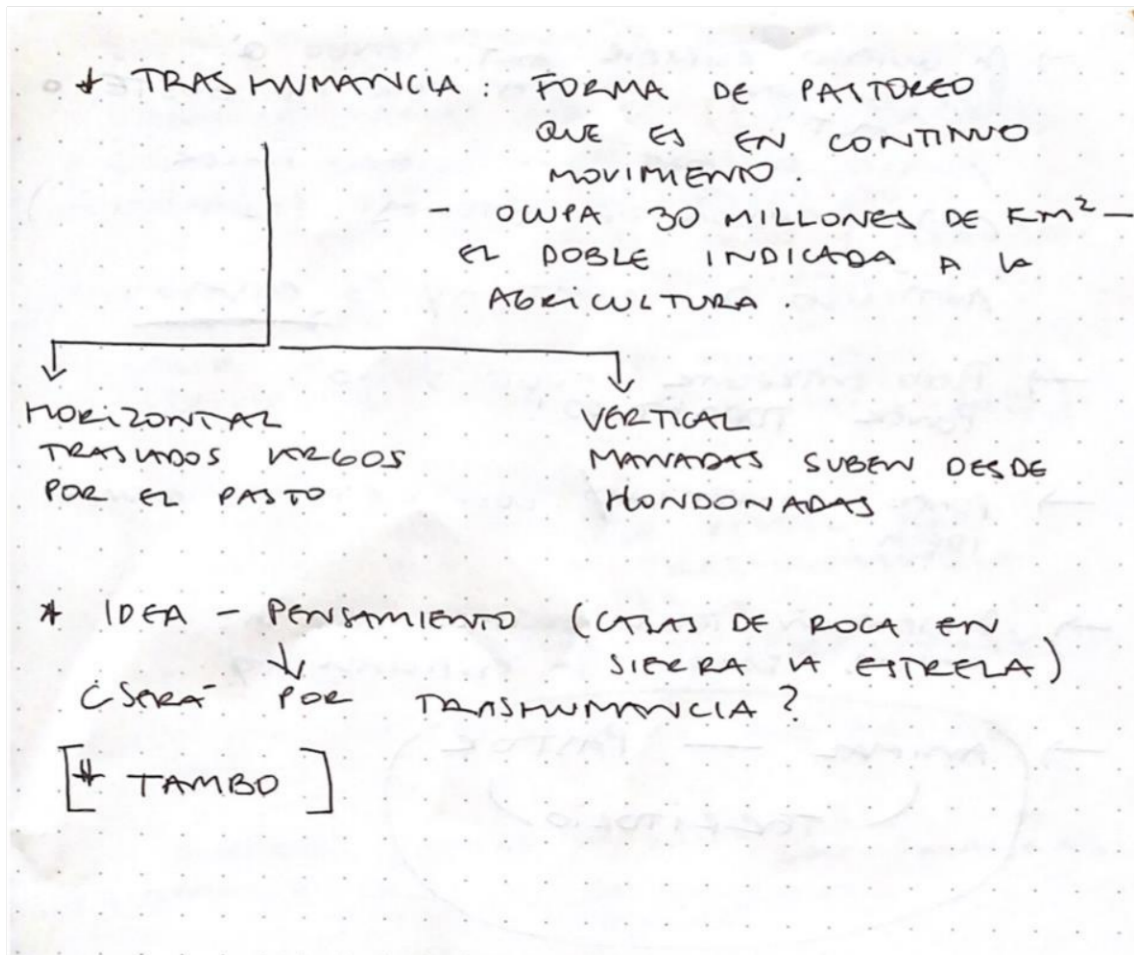 * TRASHUMANCIA : FORMA DE PASTOREO
QUE ES EN CONTINUO
MOVIMIENTO.
- OCUPA 30 MILLONES DE KM² -
EL DOBLE INDICADA A LA
AGRICULTURA.
HORIZONTAL
TRASLADOS LARGOS
POR EL PASTO
VERTICAL
MANADAS SUBEN DESDE
HONDONADAS
* IDEA - PENSAMIENTO (CASAS DE ROCA EN
SIERRA LA ESTRELA)
¿SERA POR TRASHUMANCIA?
[# TAMBO]